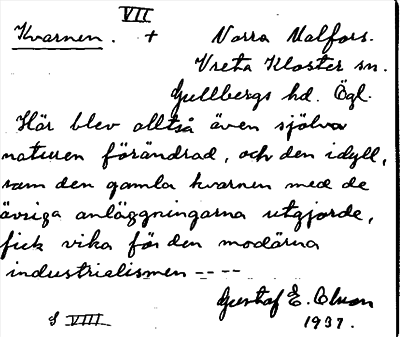 VII
Kvarnen. + Norra Malfors.
Vreta Kloster sn.
Gullbergs hd. Ögl.
Här blev alltså även själva
naturen förändrad, och den idyll,
som den gamla kvarnen med de
övriga anläggningarna utgjorde,
fick vika för den modärna
industrialismen ----
Gustaf E. Olson
S VIII 1937.